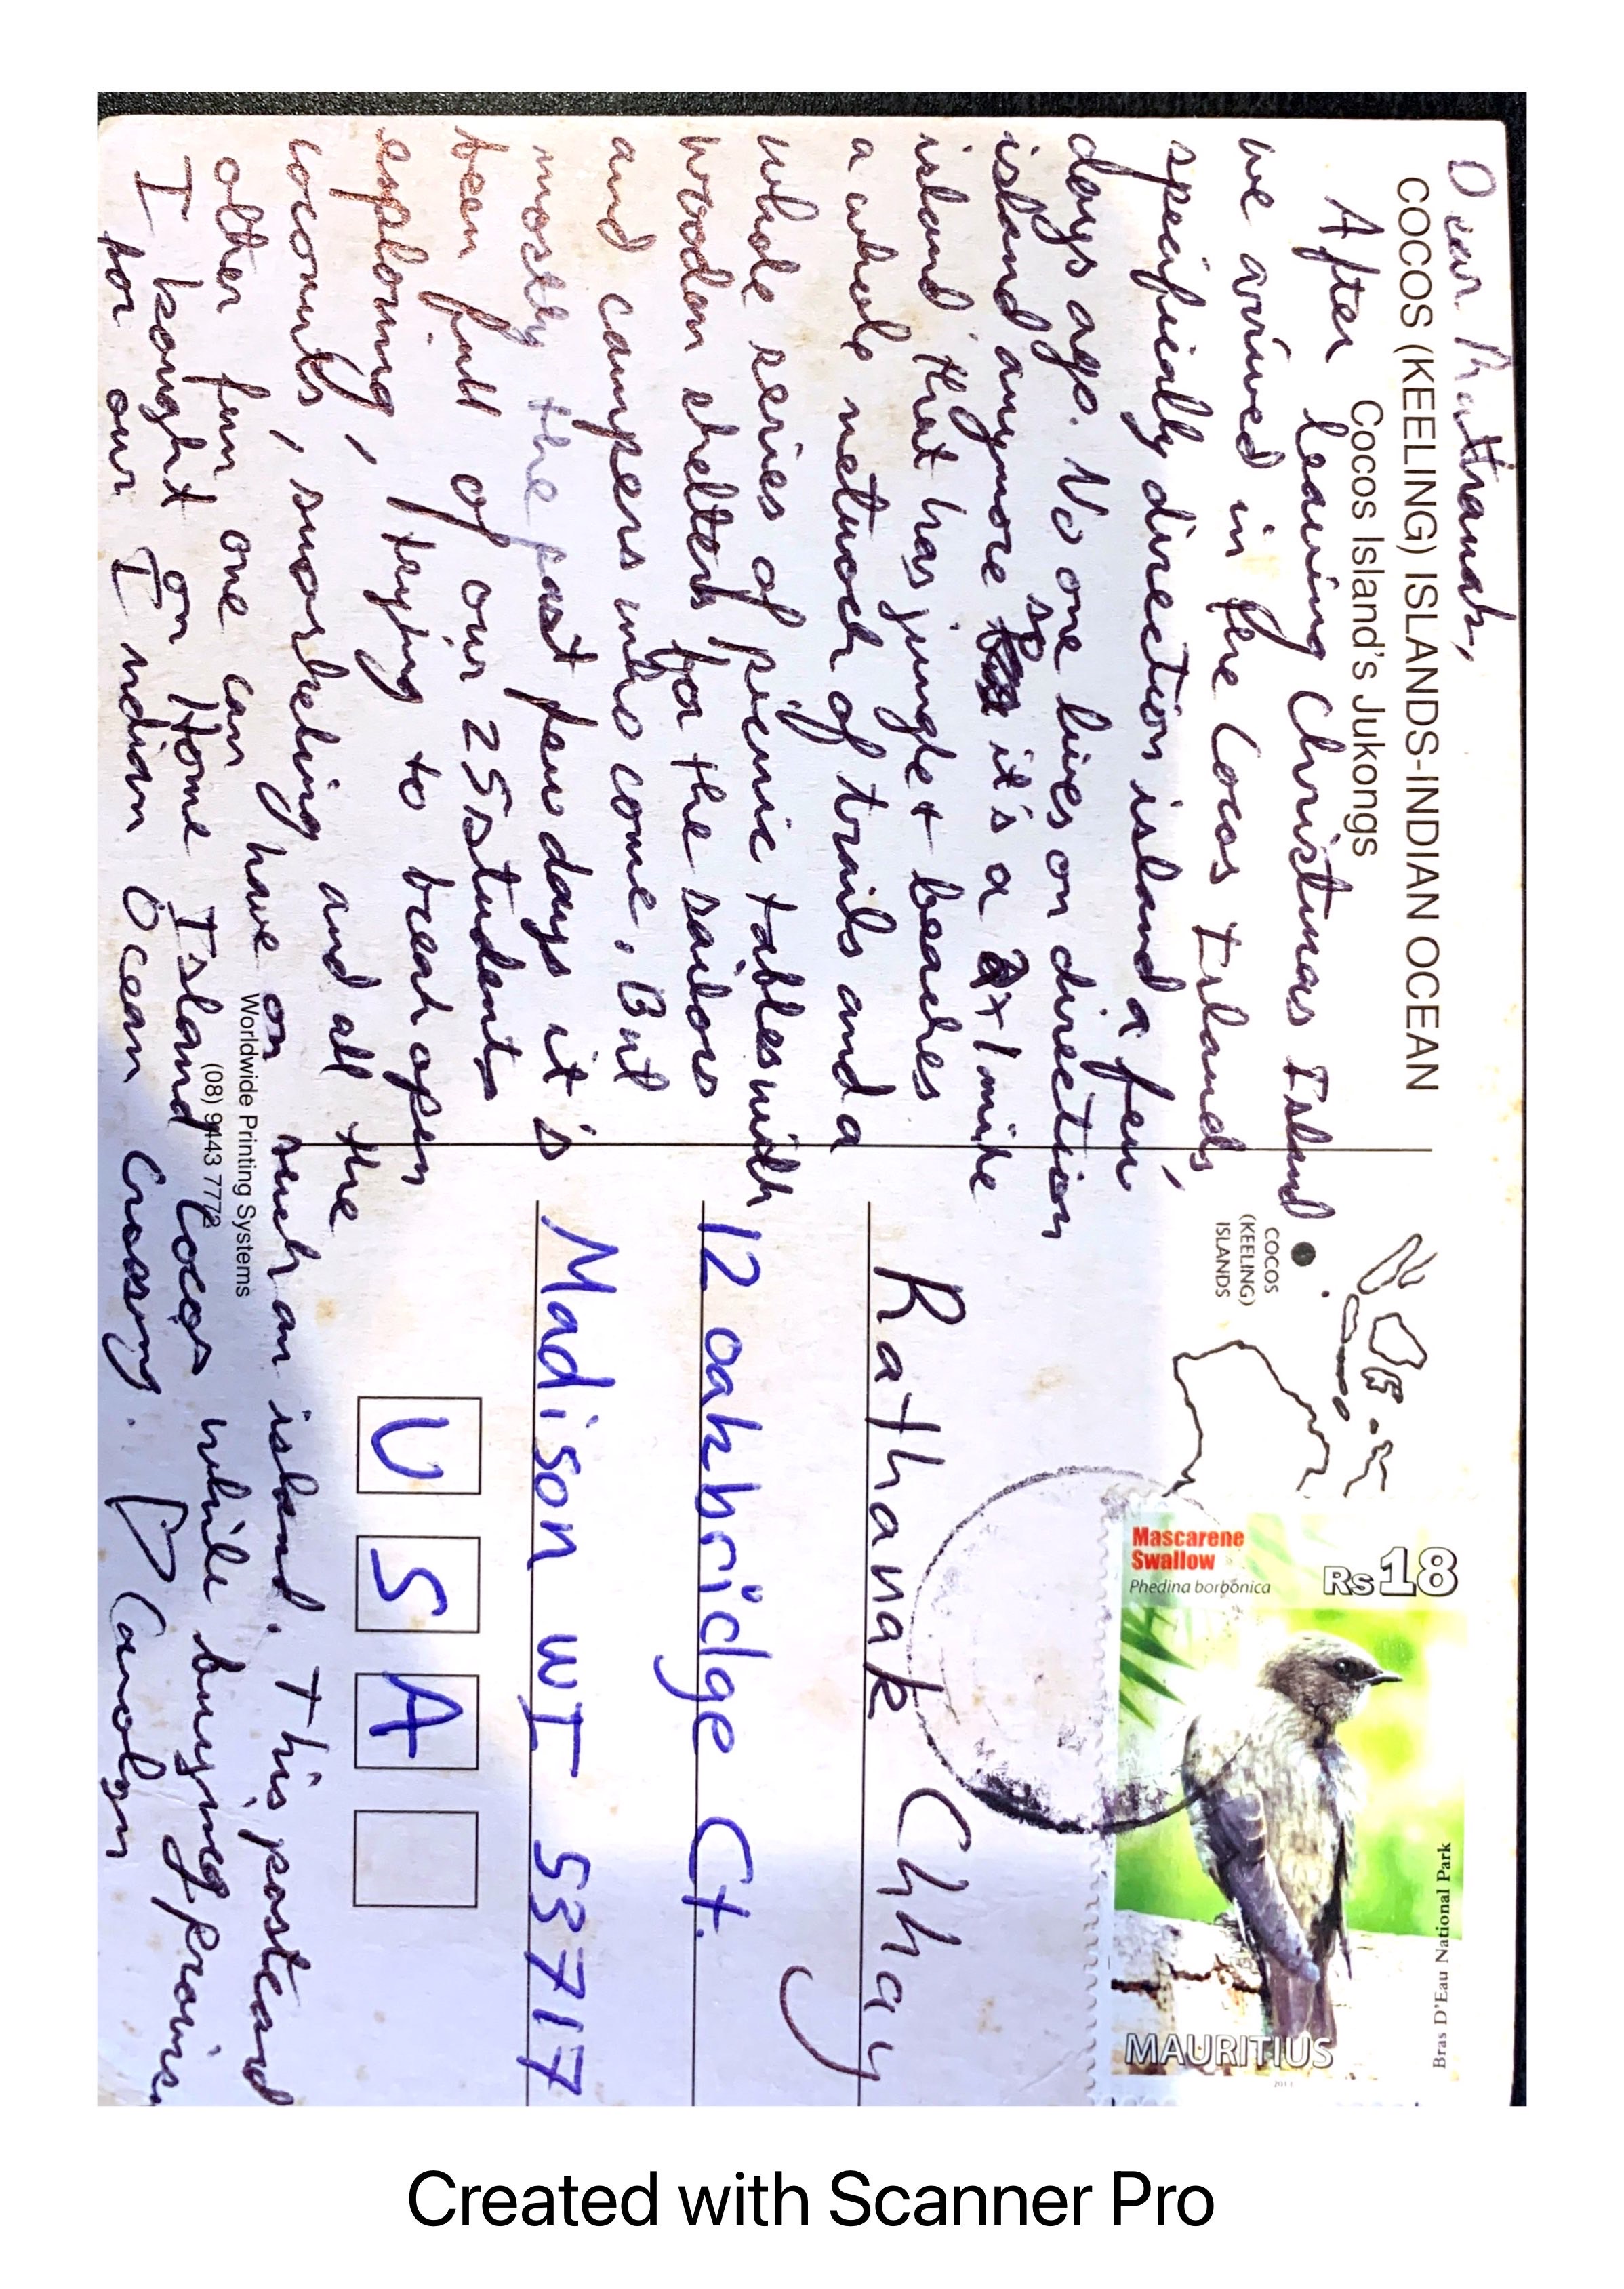 COCOS (KEELING) ISLANDS-INDIAN OCEAN
Cocos Island's Jukongs
Dear Rathanak,
After leaving Christmas Island
we arrived in the Cocos Islands,
specifically direction island a few
days ago. No one lives on direction
island anymore so it's a 2x1 mile
island that has jungle + beaches
a whole network of trails and a
whole series of picnic tables with
wooden shelters for the sailors
and campers who come. But
mostly the past few days it is
been full of our 25 students
exploring, trying to break open
coconuts, snorkeling and all the
other fun one can have on such an island. This postcard
I bought on Home Island Cocos while buying
for our Indian Ocean Crossing. Carolyn
Worldwide Printing Systems
(08) 9443 7772
COCOS
(KEELING)
ISLANDS
Mascarene
Swallow
Phedina borbonica
Rs18
Bras D'Eau National Park
MAURITIUS
Rathanak Chhay
12 oakbridge Ct.
Madison WI 53717
U S A
Created with Scanner Pro